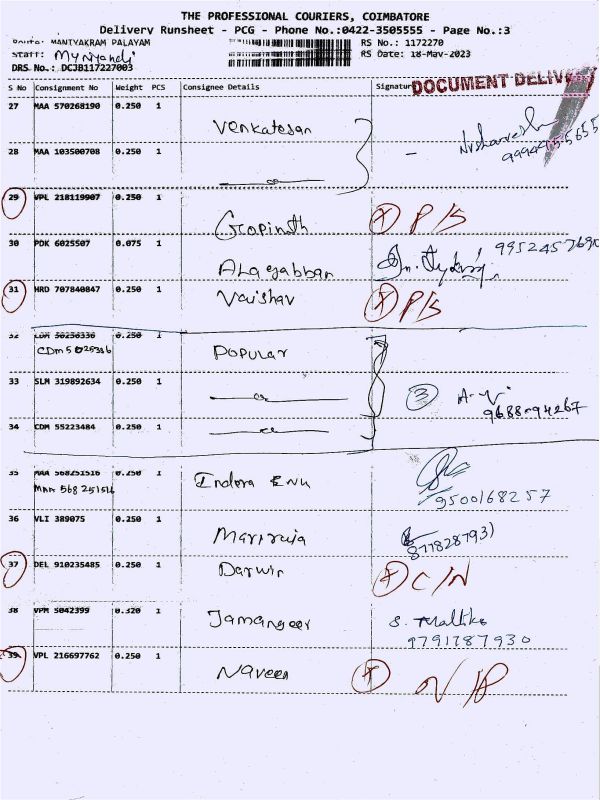 THE PROFESSIONAL COURIERS, COIMBATORE
Delivery Runsheet - PCG - Phone No.:0422-3505555 - Page No.:3
Route: MANIYAKRAM PALAYAM RS No.: 1172270
Staff: RS Date: 18-May-2023
DRS No.: DCJB117227003
DOCUMENT DELIV
S No Consignment No Weight PCS Consignee Details Signatur
27 MAA 570268190 0.250 1 Venkatesan
28 MAA 103500708 0.250 1
29 VPL 218119907 0.250 1 Gopinath P/S
30 PDK 6025507 0.075 1 Alagabban
31 HRD 707840847 0.250 1 Vaishav P/S
32 CDM 50256336 0.250 1 Popular
33 SLM 319892634 0.250 1 3
34 CDM 55223484 0.250 1
35 MAA 568251516 0.250 1 Indora
MAA 568 251516 9500168257
36 VLI 389075 0.250 1
37 DEL 910235485 0.250 1 Darwin C/N
38 VPM 5042399 0.320 1 Jamangeer S. Mallika
9791787930
39 VPL 216697762 0.250 1 Naveen